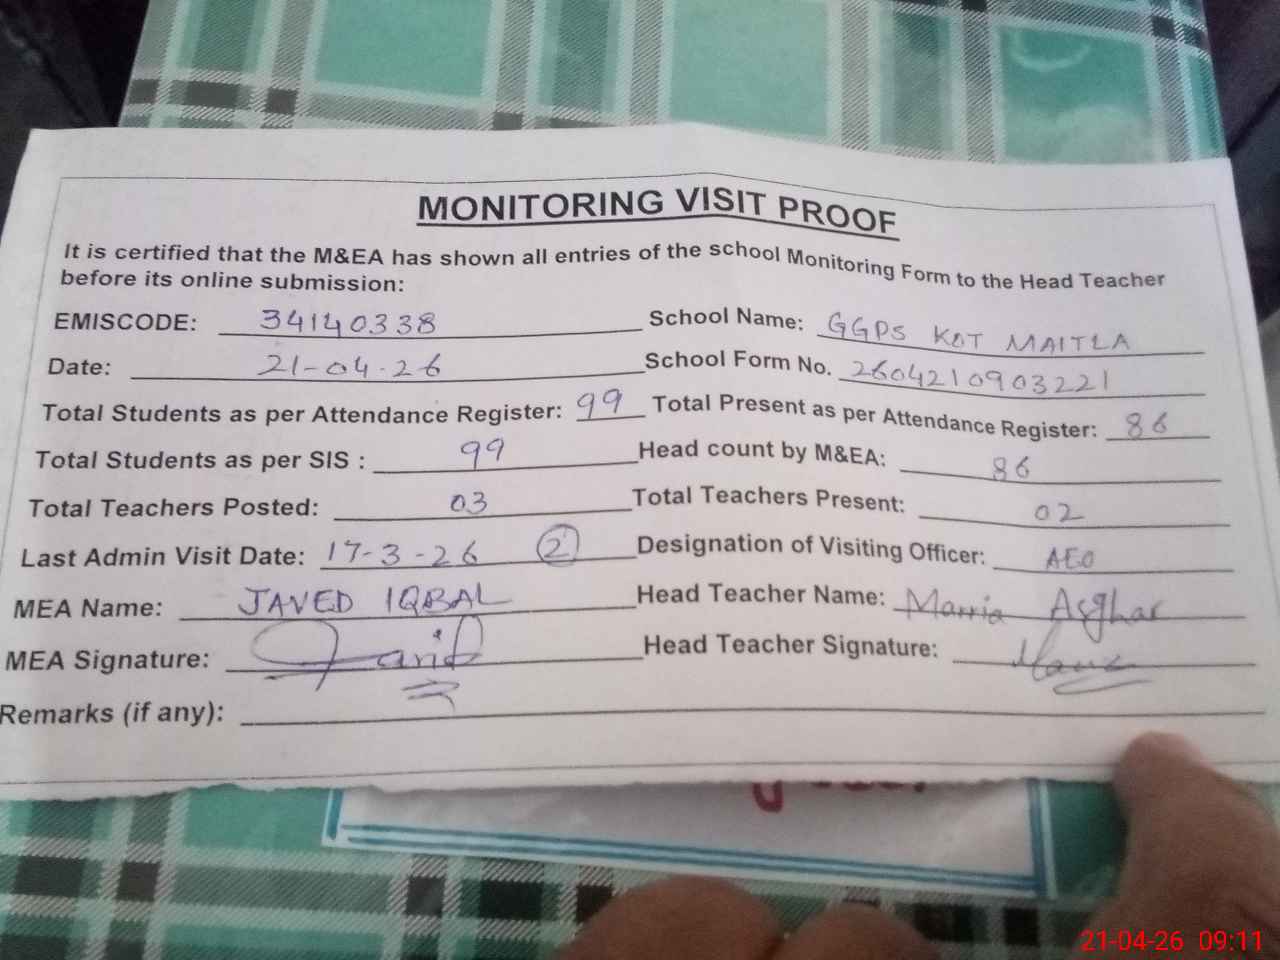 MONITORING VISIT PROOF
It is certified that the M&EA has shown all entries of the school Monitoring Form to the Head Teacher
before its online submission:
EMISCODE: 34140338 School Name: GGPS KOT MAITLA
Date: 21-04-26 School Form No. 2604210903221
Total Students as per Attendance Register: 99 Total Present as per Attendance Register: 86
Total Students as per SIS : 99 Head count by M&EA: 86
Total Teachers Posted: 03 Total Teachers Present: 02
Last Admin Visit Date: 17-3-26 2 Designation of Visiting Officer: AEO
MEA Name: JAVED IQBAL Head Teacher Name: Marria Asghar
MEA Signature: Head Teacher Signature:
Remarks (if any):
21-04-26 09:11